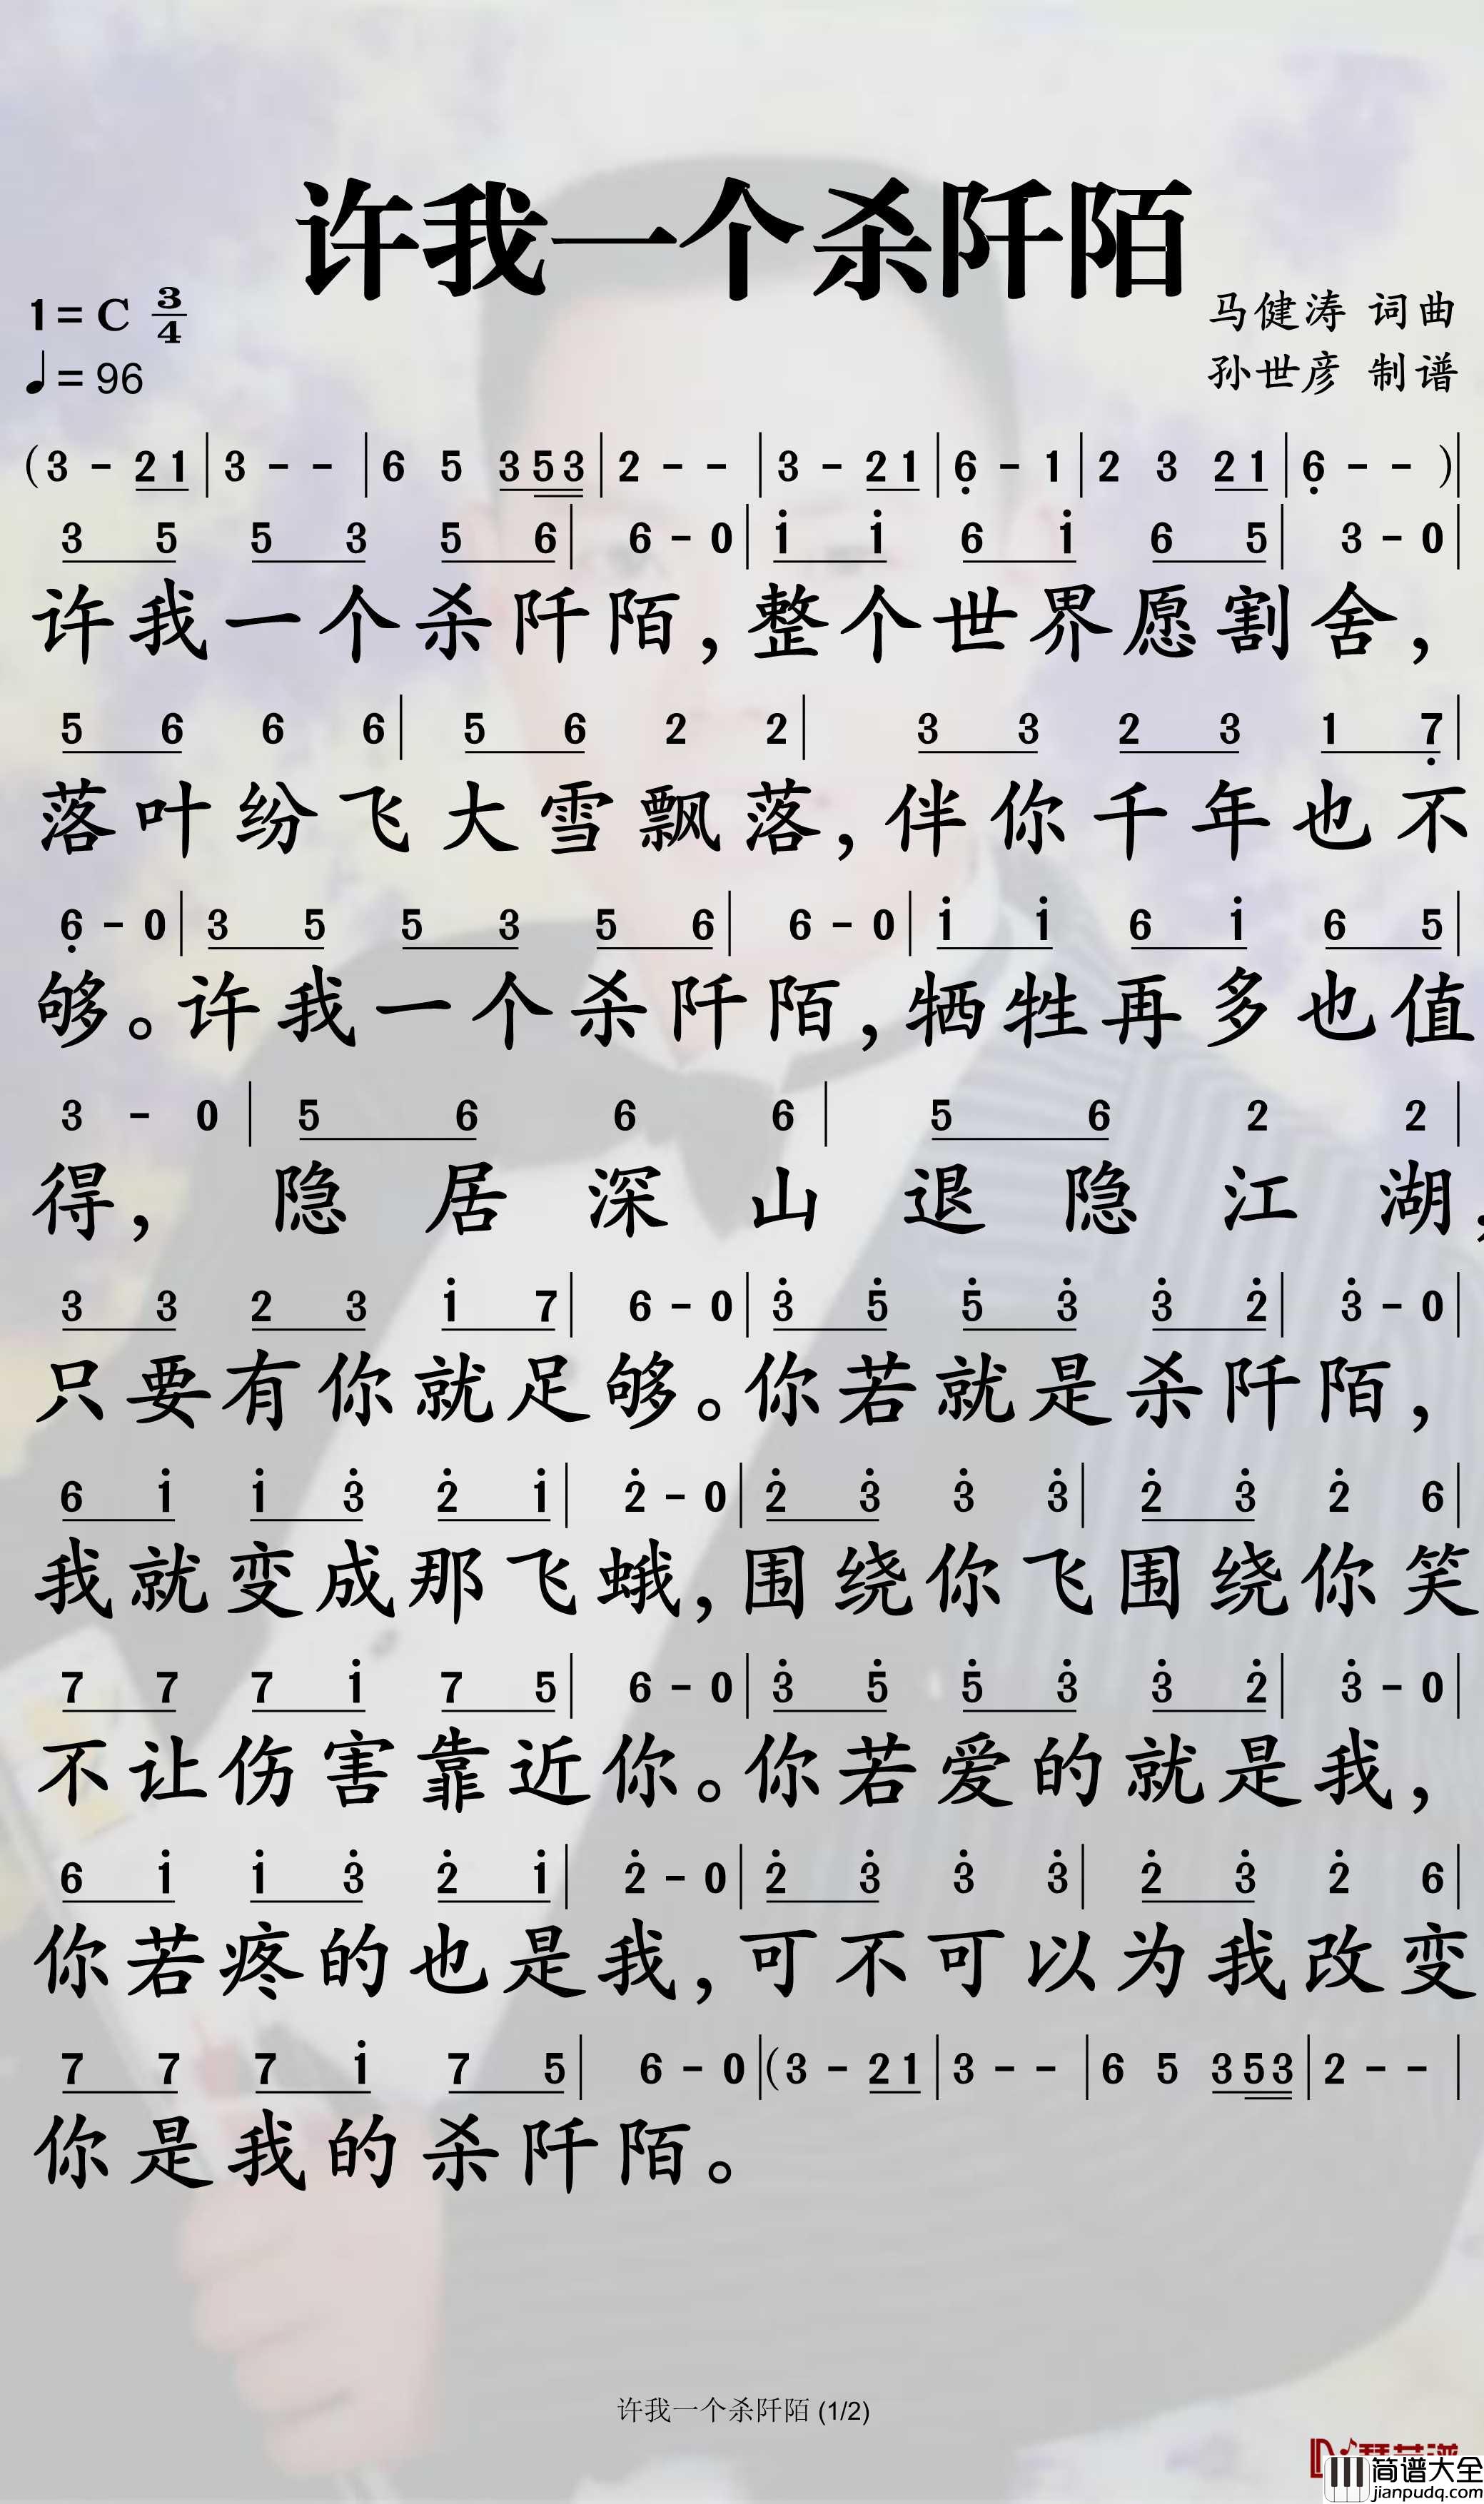 许我一个杀阡陌
1=C 3/4
马健涛 词曲
♩=96
孙世彦 制谱
(3 - 2 1 | 3 - - | 6 5 3 5 3 | 2 - - | 3 - 2 1 | 6̣ - 1 | 2 3 2 1 | 6̣ - - ) |
3 5 5 3 5 6 | 6 - 0 | i i 6 i 6 5 | 3 - 0 |
许我一个杀阡陌，整个世界愿割舍，
5 6 6 6 | 5 6 2 2 | 3 3 2 3 1 7̣ |
落叶纷飞大雪飘落，伴你千年也不
6̣ - 0 | 3 5 5 3 5 6 | 6 - 0 | i i 6 i 6 5 |
够。许我一个杀阡陌，牺牲再多也值
3 - 0 | 5 6 6 6 | 5 6 2 2 |
得，隐居深山退隐江湖，
3 3 2 3 i 7 | 6 - 0 | 3̇ 5̇ 5̇ 3̇ 3̇ 2̇ | 3̇ - 0 |
只要有你就足够。你若就是杀阡陌，
6 i i 3̇ 2̇ i | 2̇ - 0 | 2̇ 3̇ 3̇ 3̇ | 2̇ 3̇ 2̇ 6 |
我就变成那飞蛾，围绕你飞围绕你笑
7 7 7 i 7 5 | 6 - 0 | 3̇ 5̇ 5̇ 3̇ 3̇ 2̇ | 3̇ - 0 |
不让伤害靠近你。你若爱的就是我，
6 i i 3̇ 2̇ i | 2̇ - 0 | 2̇ 3̇ 3̇ 3̇ | 2̇ 3̇ 2̇ 6 |
你若疼的也是我，可不可以为我改变
7 7 7 i 7 5 | 6 - 0 | (3 - 2 1 | 3 - - | 6 5 3 5 3 | 2 - - |
你是我的杀阡陌。
许我一个杀阡陌 (1/2)
简谱大全
jianpudq.com